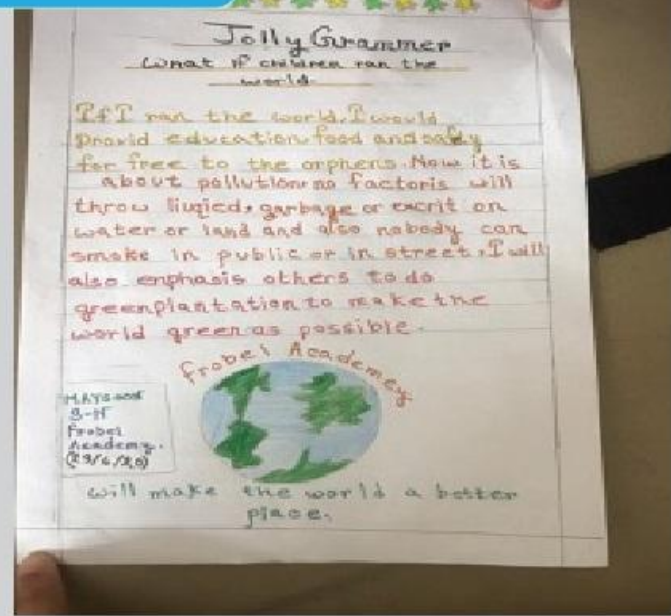 Jolly Grammer
What if children ran the
world
If I ran the world, I would
provid education, food and safty
for free to the orphens. Now it is
about pollution: no factoris will
throw liuqied, garbage or excrit on
water or land and also nobody can
smoke in public or in street, I will
also enphasis others to do
greenplantation to make the
world green as possible.
Frobel Academey
3-H
Frobel
Academy.
will make the world a better
place.